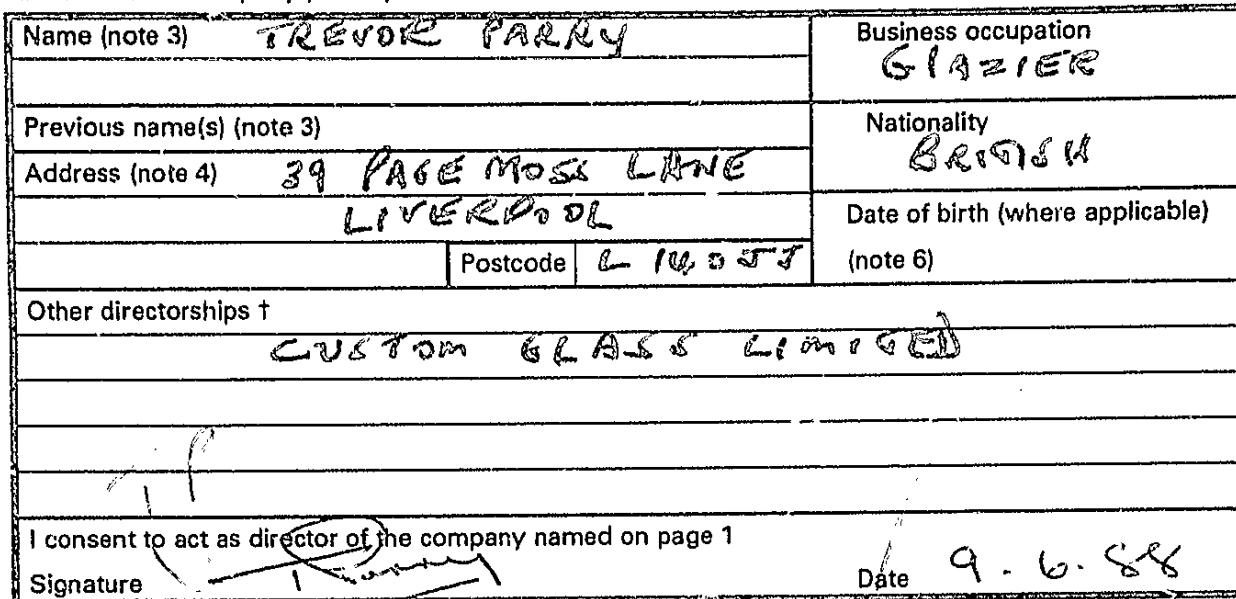 Name (note 3) TREVOR PARRY
Business occupation
GLAZIER
Previous name(s) (note 3)
Nationality
BRITISH
Address (note 4) 39 PAGE MOSS LANE
LIVERPOOL
Date of birth (where applicable)
(note 6)
Postcode L14 0JJ
Other directorships †
CUSTOM GLASS LIMITED
I consent to act as director of the company named on page 1
Signature T Parry
Date 9.6.88